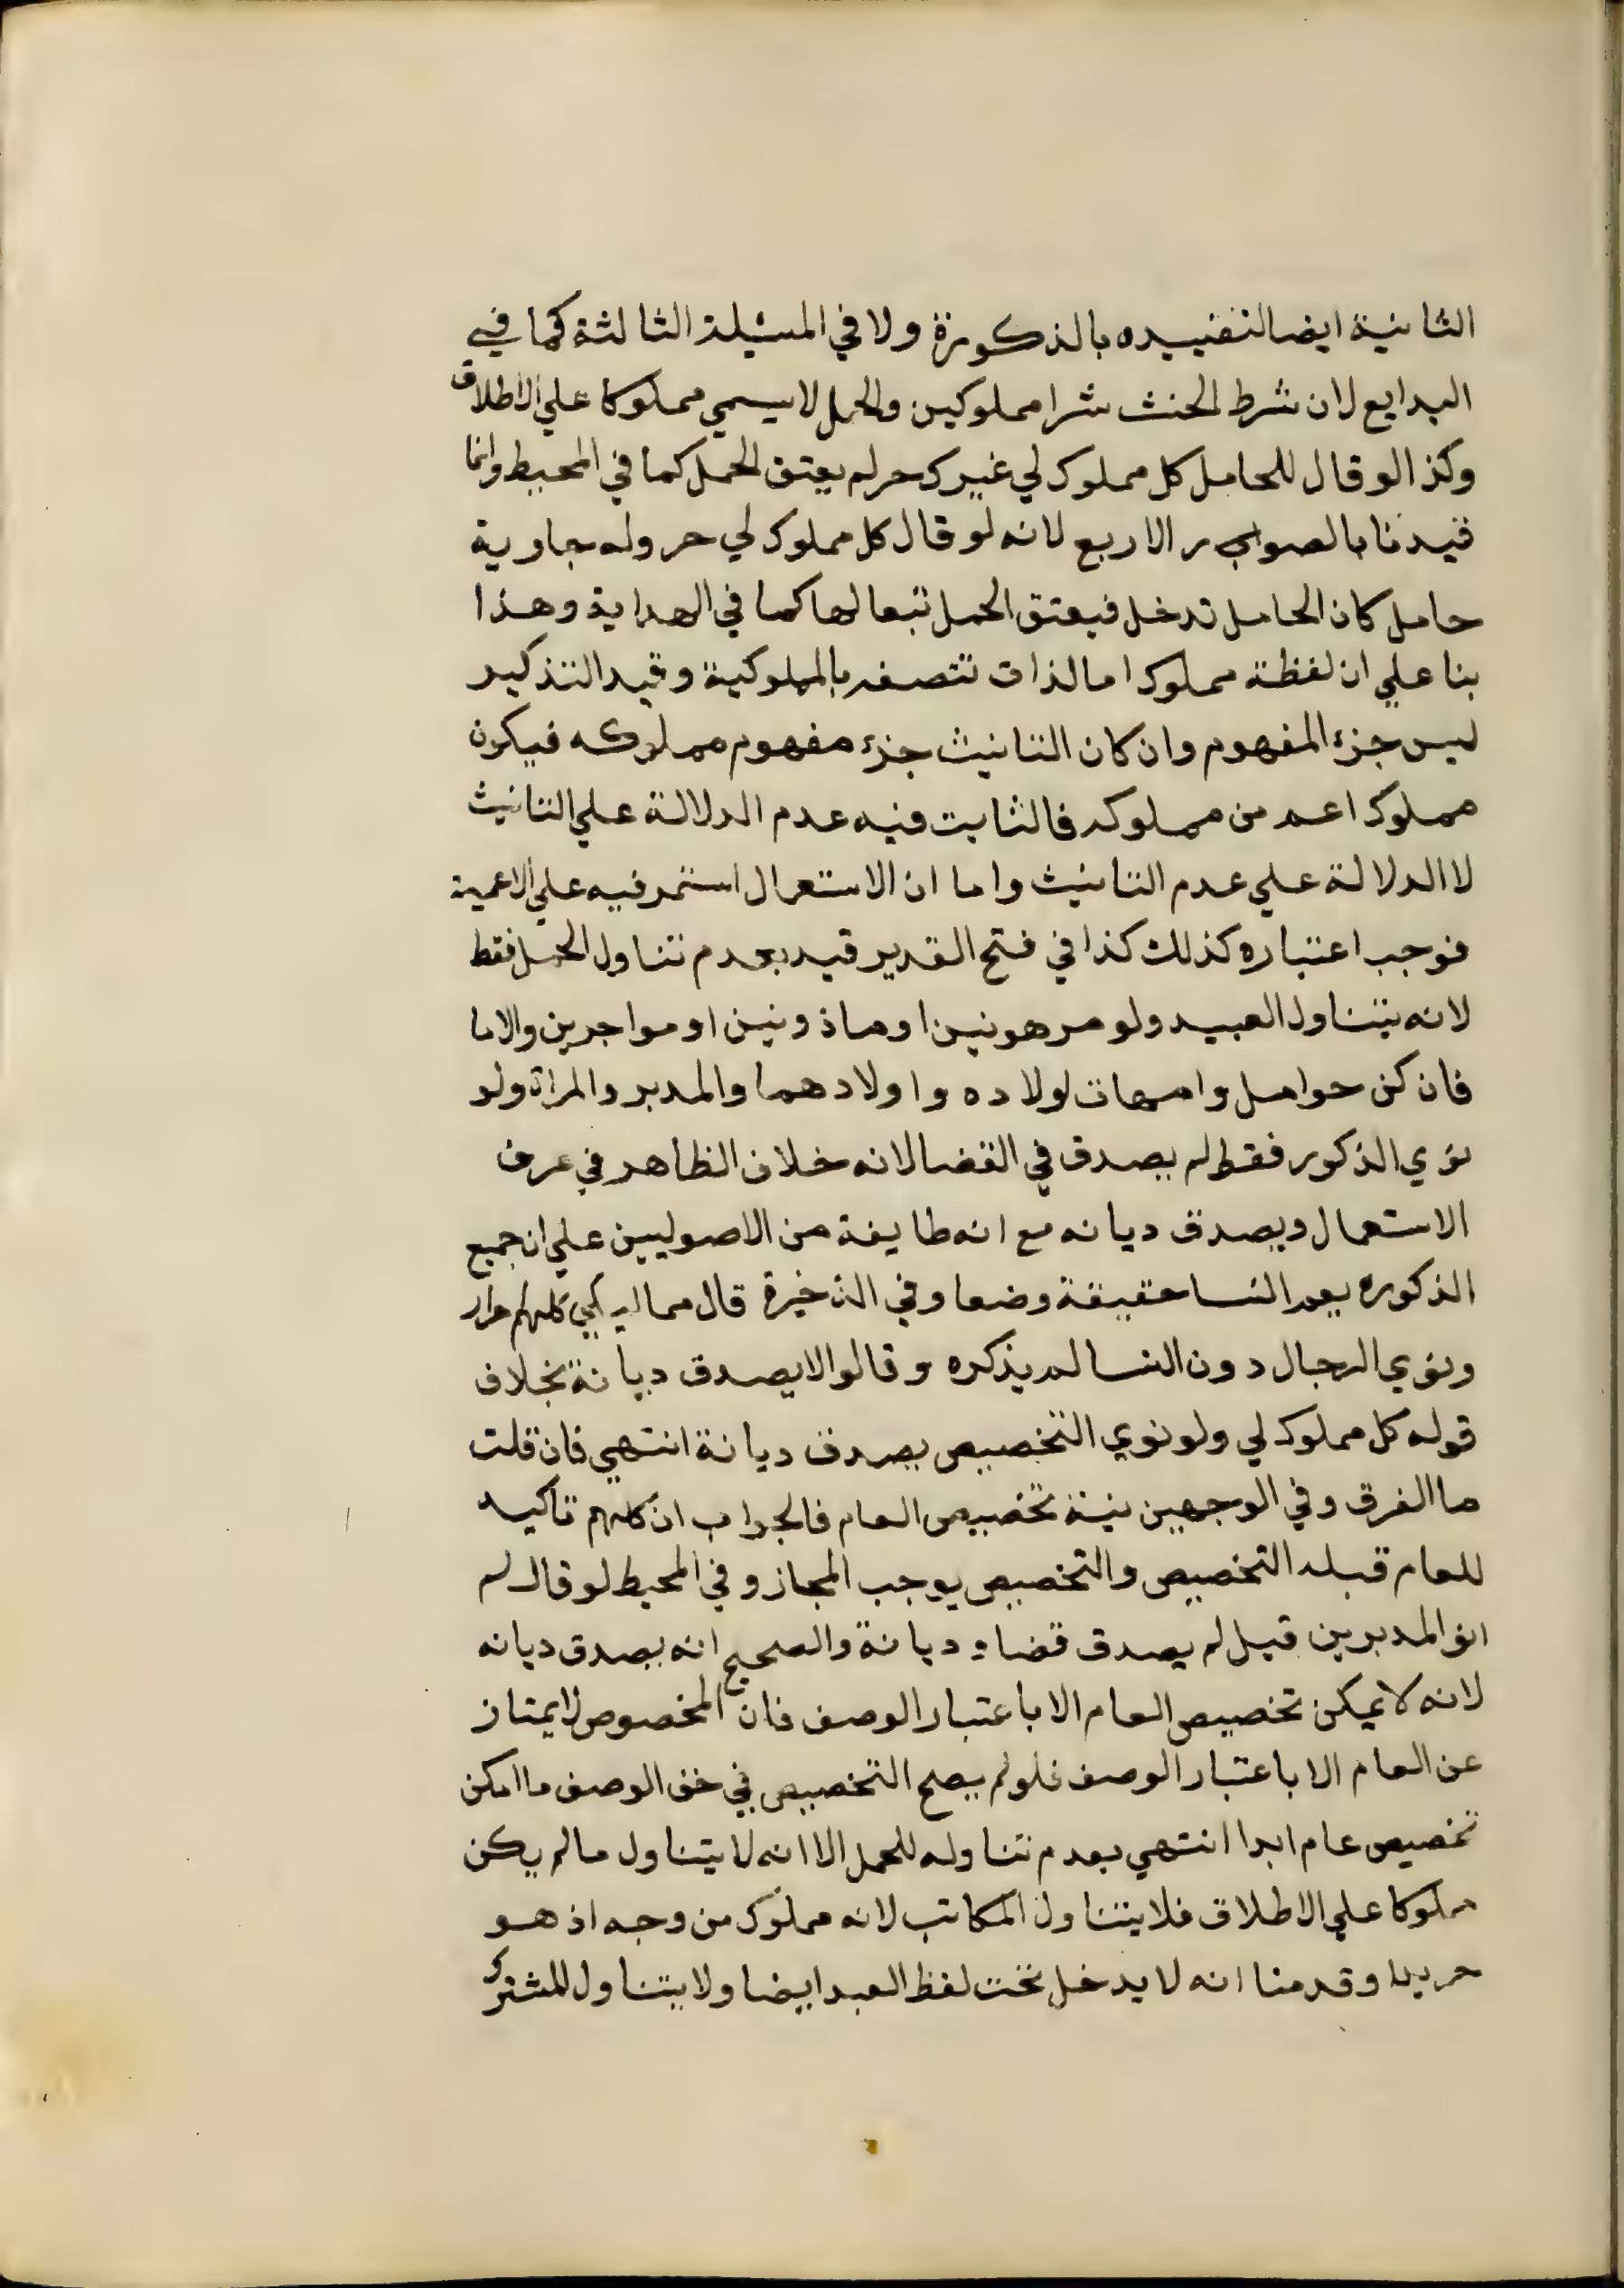 الثانية ايضا لتقييده بالذكورة ولا في المسئلة الثالثة كما في
البدايع لان شرط الحنث شرا مملوكين والحمل لا يسمي مملوكا علي الاطلاق
وكذا لو قال للحامل كل مملوك لي غيرك حر لم يعتق الحمل كما في المحيط وانما
قيدنا بالصور الاربع لانه لو قال كل مملوك لي حر وله جاوية
حامل كان الحامل تدخل فيعتق الحمل تبعا لها كما في الهداية وهذا
بنا علي ان لفظة مملوك اما لذات تتصف بالمملوكية وقيد التذكير
ليس جزء المفهوم وان كان التانيث جزء مفهوم مملوكه فيكون
مملوك اعم من مملوكه فالثابت فيه عدم الدلالة علي التانيث
لا الدلالة علي عدم التانيث واما ان الاستعمال استمر فيه علي الاعمية
فوجب اعتباره كذلك كذا في فتح القدير قيد بعدم تناول الحمل فقط
لانه يتناول العبيد ولو مرهونين او ماذونين او مواجرين والاما
فان كن حوامل وامهات لولاده واولادهما والمدبر والمراة ولو
نوي الذكور فقط لم يصدق في القضا لانه خلاف الظاهر في عرف
الاستعمال ويصدق ديانه مع انه طايفة من الاصوليين علي ان جميع
الذكوره يعم النسا حقيقة وضعا وفي الذخيرة قال مماليكي كلهم احرار
ونوي الرجال دون النسا لم يذكره وقالوا لا يصدق ديانة بخلاف
قوله كل مملوك لي ولو نوي التخصيص يصدق ديانة انتهي فان قلت
ما الفرق وفي الوجهين نية تخصيص العام فالجواب ان كلهم تاكيد
للعام قبله التخصيص والتخصيص يوجب المجاز وفي المحيط لو قال لم
انو المدبرين قيل لم يصدق قضا و ديانة والصحيح انه يصدق ديانه
لانه لا يمكن تخصيص العام الا باعتبار الوصف فان المخصوص لا يمتاز
عن العام الا باعتبار الوصف فلو لم يصح التخصيص في حق الوصف ما امكن
تخصيص عام ابدا انتهي بعدم تناوله للحمل الا انه لا يتناول ما لم يكن
مملوكا علي الاطلاق فلا يتناول المكاتب لانه مملوك من وجه اذ هو
حر يدا وقدمنا انه لا يدخل تحت لفظ العبد ايضا ولا يتناول للمشترك